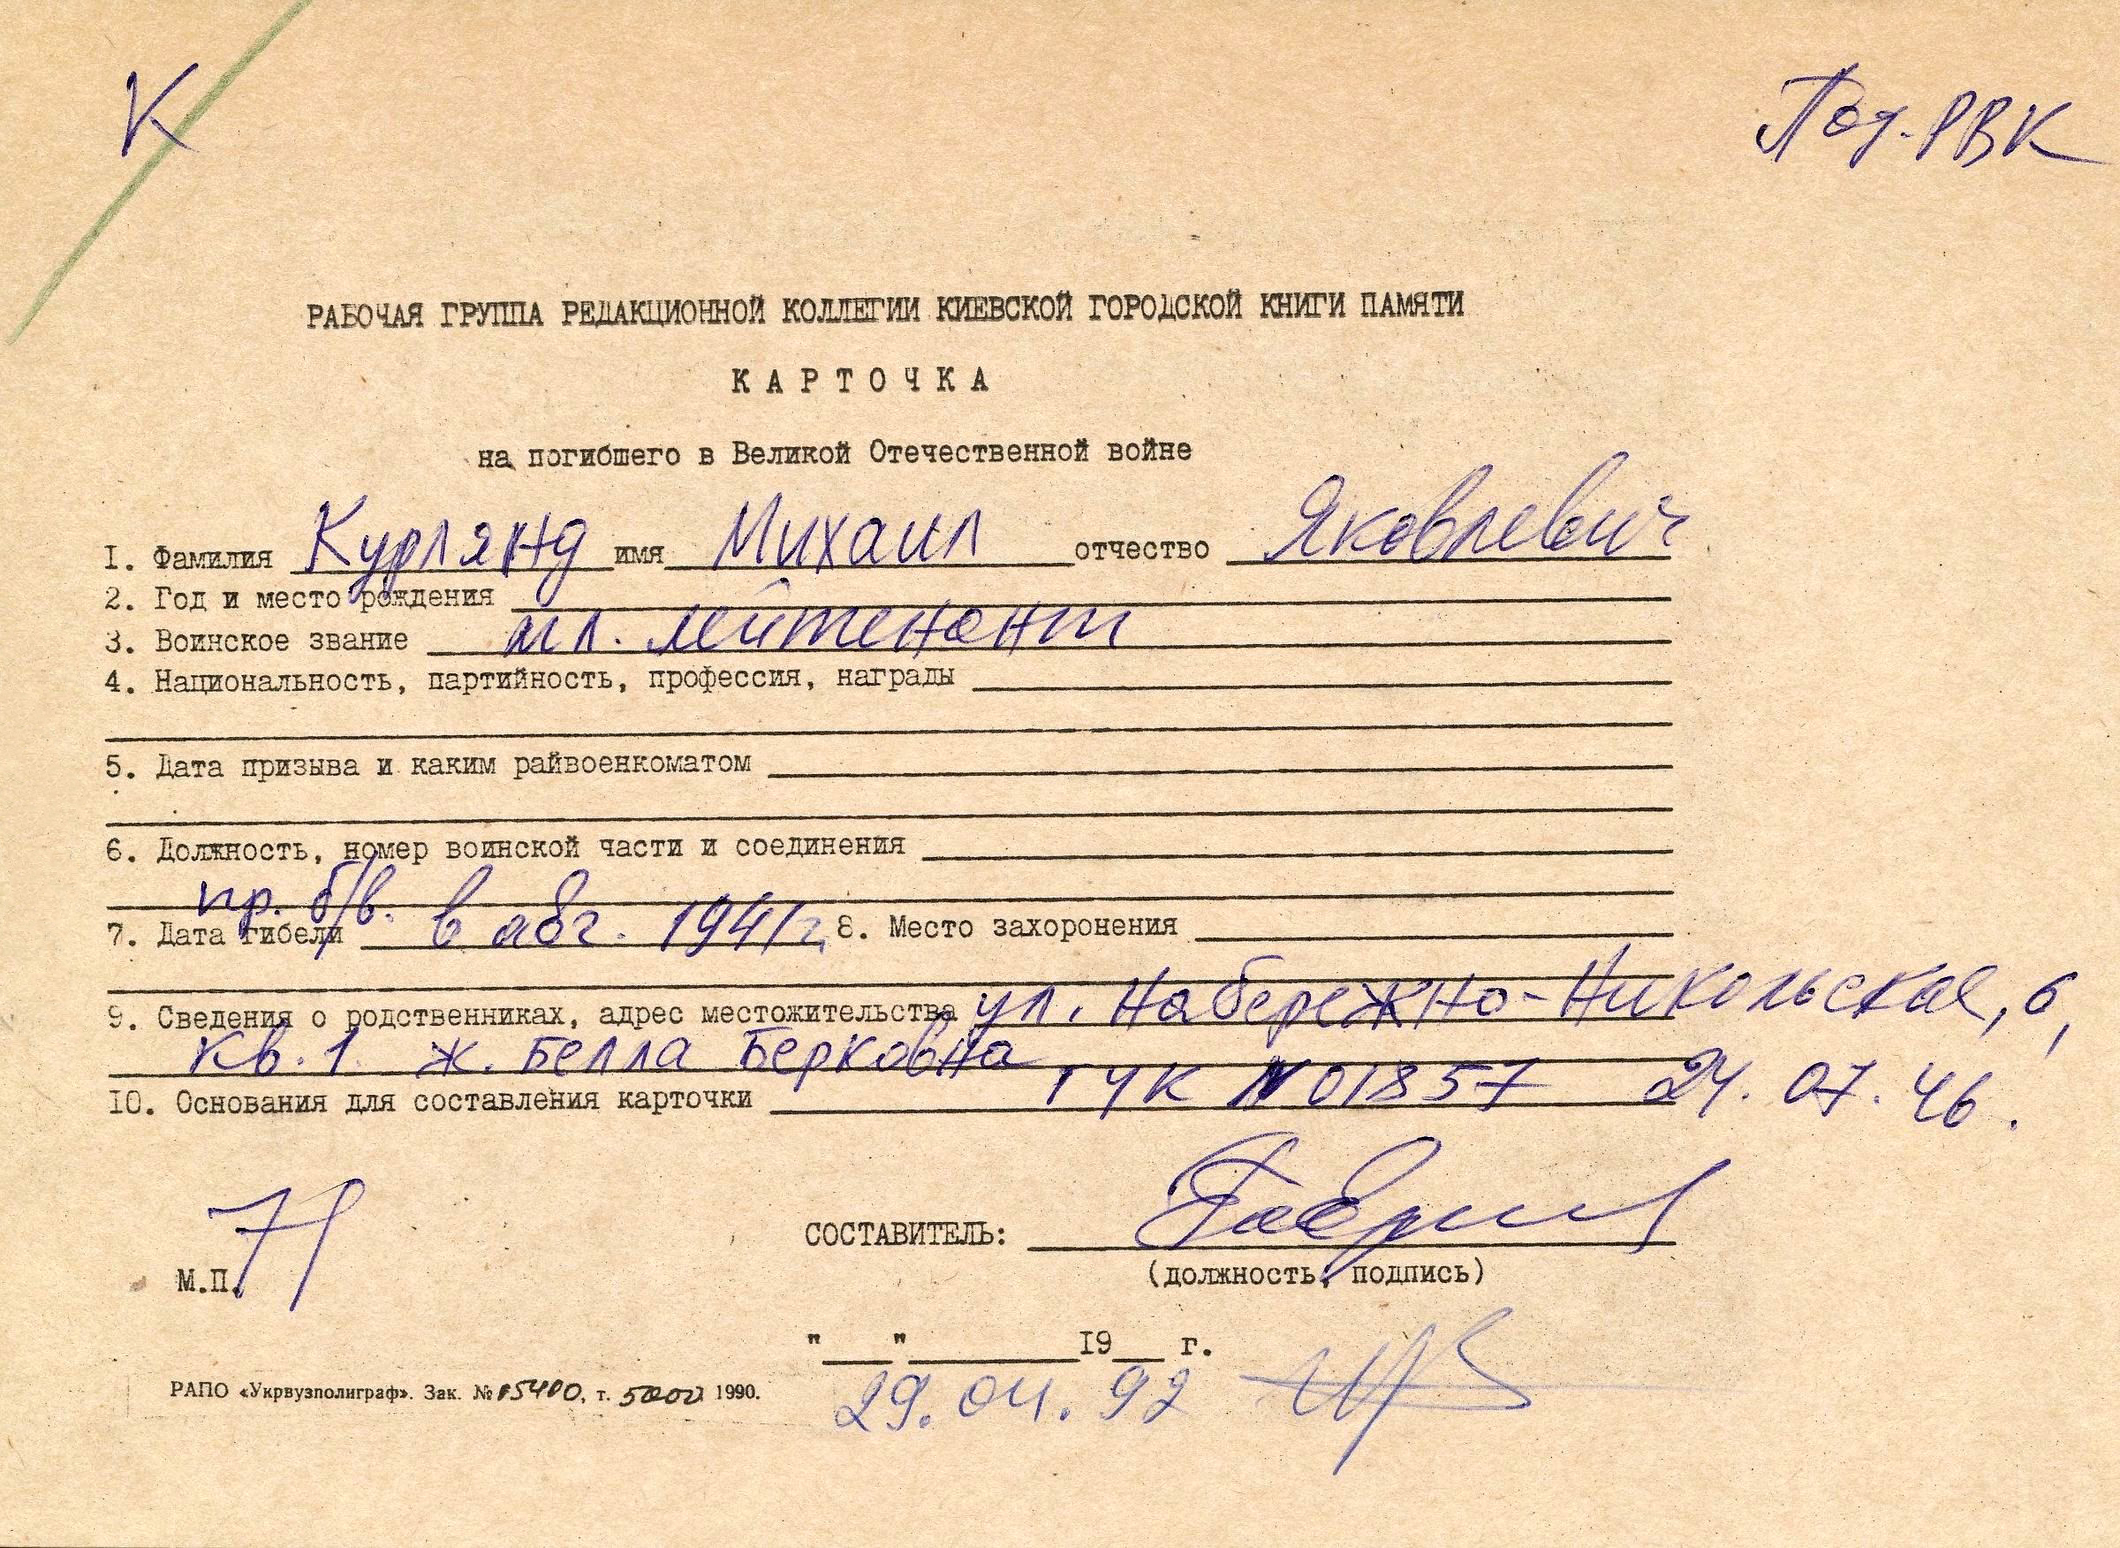 К
Под. РВК
РАБОЧАЯ ГРУППА РЕДАКЦИОННОЙ КОЛЛЕГИИ КИЕВСКОЙ ГОРОДСКОЙ КНИГИ ПАМЯТИ
КАРТОЧКА
на погибшего в Великой Отечественной войне
1. Фамилия Курлянд имя Михаил отчество Яковлевич
2. Год и место рождения
3. Воинское звание мл. лейтенант
4. Национальность, партийность, профессия, награды
5. Дата призыва и каким райвоенкоматом
6. Должность, номер воинской части и соединения
пр. б/в.
7. Дата гибели в авг. 1941г. 8. Место захоронения
9. Сведения о родственниках, адрес местожительства ул. Набережно-Никольская, 6,
кв. 1. ж. Белла Берковна
10. Основания для составления карточки ГУК №01857 24.07.46.
СОСТАВИТЕЛЬ:
(должность, подпись)
М.П.
"___"________19__ г.
29.04.92
РАПО «Укрвузполиграф». Зак. №05400, т. 5000 1990.